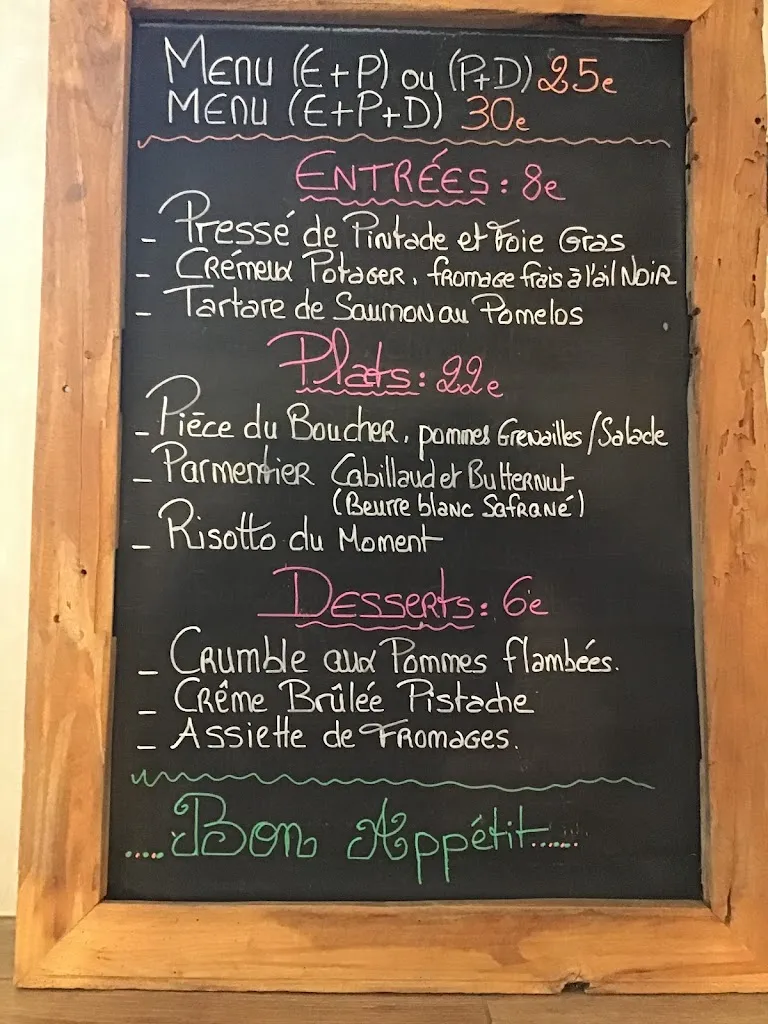 Menu (E+P) ou (P+D) 25e
Menu (E+P+D) 30e
Entrées : 8e
- Pressé de Pintade et Foie Gras
- Crémeux Potager, fromage frais à l'ail Noir
- Tartare de Saumon au Pomelos
Plats : 22e
- Pièce du Boucher, pommes Grenailles / Salade
- Parmentier Cabillaud et Butternut
(Beurre blanc Safrané)
- Risotto du Moment
Desserts : 6e
- Crumble aux Pommes flambées.
- Crême Brûlée Pistache
- Assiette de Fromages.
..... Bon Appétit ......